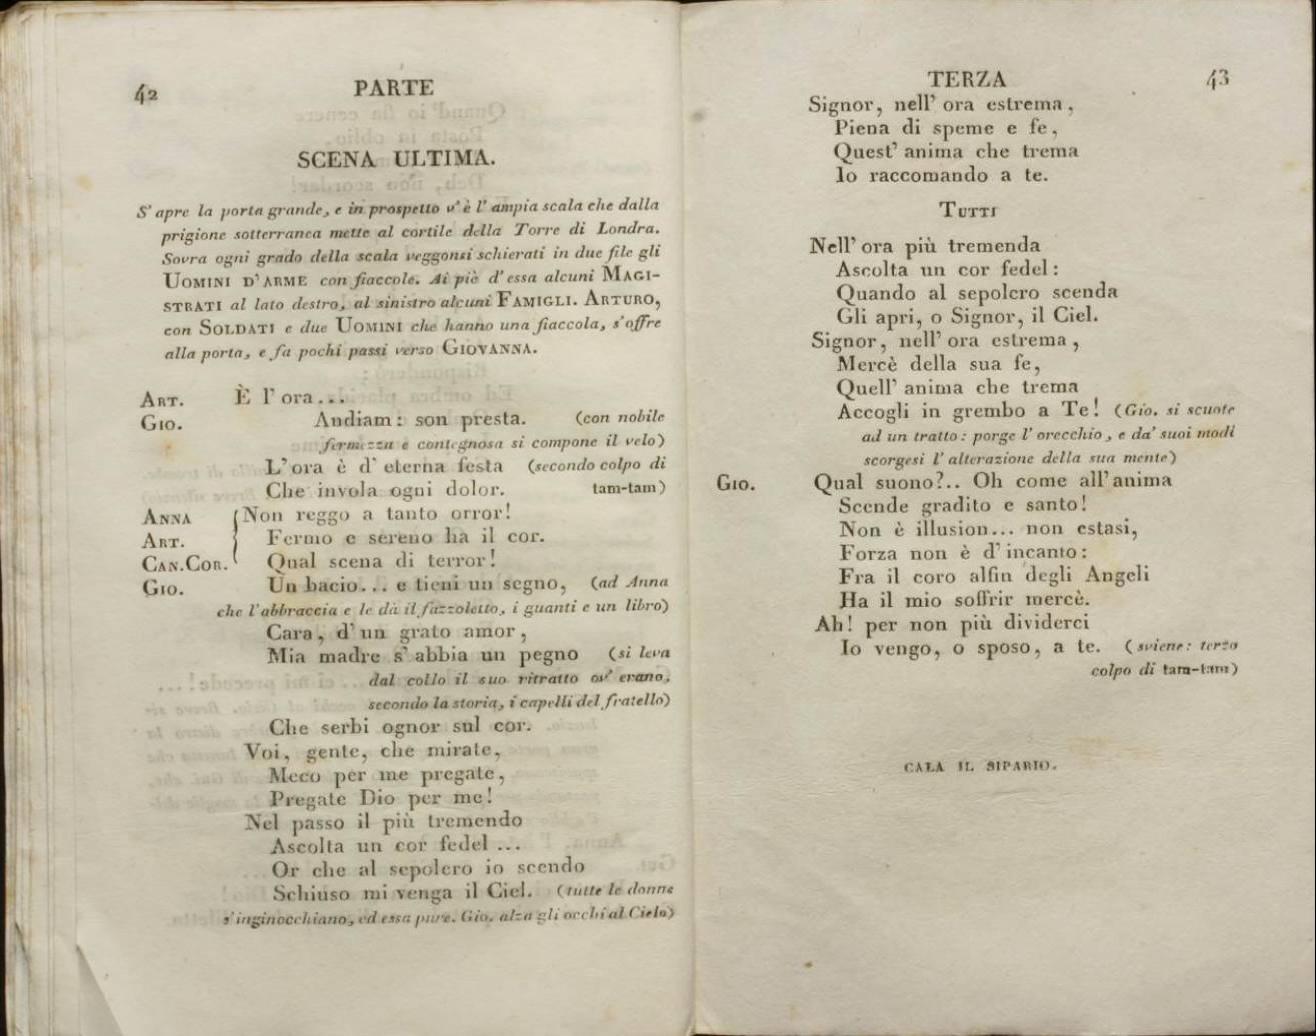 42
PARTE
SCENA ULTIMA.
S' apre la porta grande, e in prospetto v' è l' ampia scala che dalla
prigione sotterranea mette al cortile della Torre di Londra.
Sovra ogni grado della scala veggonsi schierati in due file gli
UOMINI D' ARME con fiaccole. Ai piè d' essa alcuni MAGI-
STRATI al lato destro, al sinistro alcuni FAMIGLI. ARTURO,
con SOLDATI e due UOMINI che hanno una fiaccola, s' offre
alla porta, e fa pochi passi verso GIOVANNA.
ART. È l' ora...
GIO. Andiam: son presta. (con nobile
fermezza e contegnosa si compone il velo)
L' ora è d' eterna festa (secondo colpo di
Che invola ogni dolor. tam-tam)
ANNA Non reggo a tanto orror!
ART. Fermo e sereno ha il cor.
CAN. COR. Qual scena di terror!
GIO. Un bacio... e tieni un segno, (ad Anna
che l' abbraccia e le dà il fazzoletto, i guanti e un libro)
Cara, d' un grato amor,
Mia madre s' abbia un pegno (si leva
dal collo il suo ritratto ov' erano,
secondo la storia, i capelli del fratello)
Che serbi ognor sul cor.
Voi, gente, che mirate,
Meco per me pregate,
Pregate Dio per me!
Nel passo il più tremendo
Ascolta un cor fedel ...
Or che al sepolcro io scendo
Schiuso mi venga il Ciel. (tutte le donne
s' inginocchiano, ed essa pure. Gio. alza gli occhi al Cielo)
TERZA
43
Signor, nell' ora estrema,
Piena di speme e fe,
Quest' anima che trema
Io raccomando a te.
TUTTI
Nell' ora più tremenda
Ascolta un cor fedel:
Quando al sepolcro scenda
Gli apri, o Signor, il Ciel.
Signor, nell' ora estrema,
Mercè della sua fe,
Quell' anima che trema
Accogli in grembo a Te! (Gio. si scuote
ad un tratto: porge l' orecchio, e da' suoi modi
scorgesi l' alterazione della sua mente)
GIO. Qual suono?.. Oh come all' anima
Scende gradito e santo!
Non è illusion... non estasi,
Forza non è d' incanto:
Fra il coro alfin degli Angeli
Ha il mio soffrir mercè.
Ah! per non più dividerci
Io vengo, o sposo, a te. (sviene: terzo
colpo di tam-tam)
CALA IL SIPARIO.